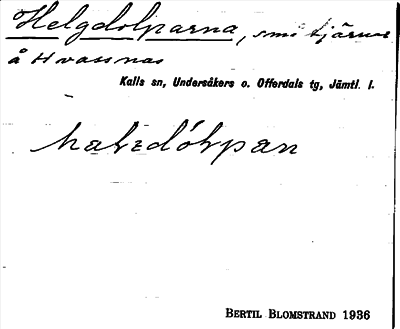 Helgdolparna, små tjärnar
å Hvassnas
Kalls sn, Undersåkers o. Offerdals tg, Jämtl. l.
BERTIL BLOMSTRAND 1936